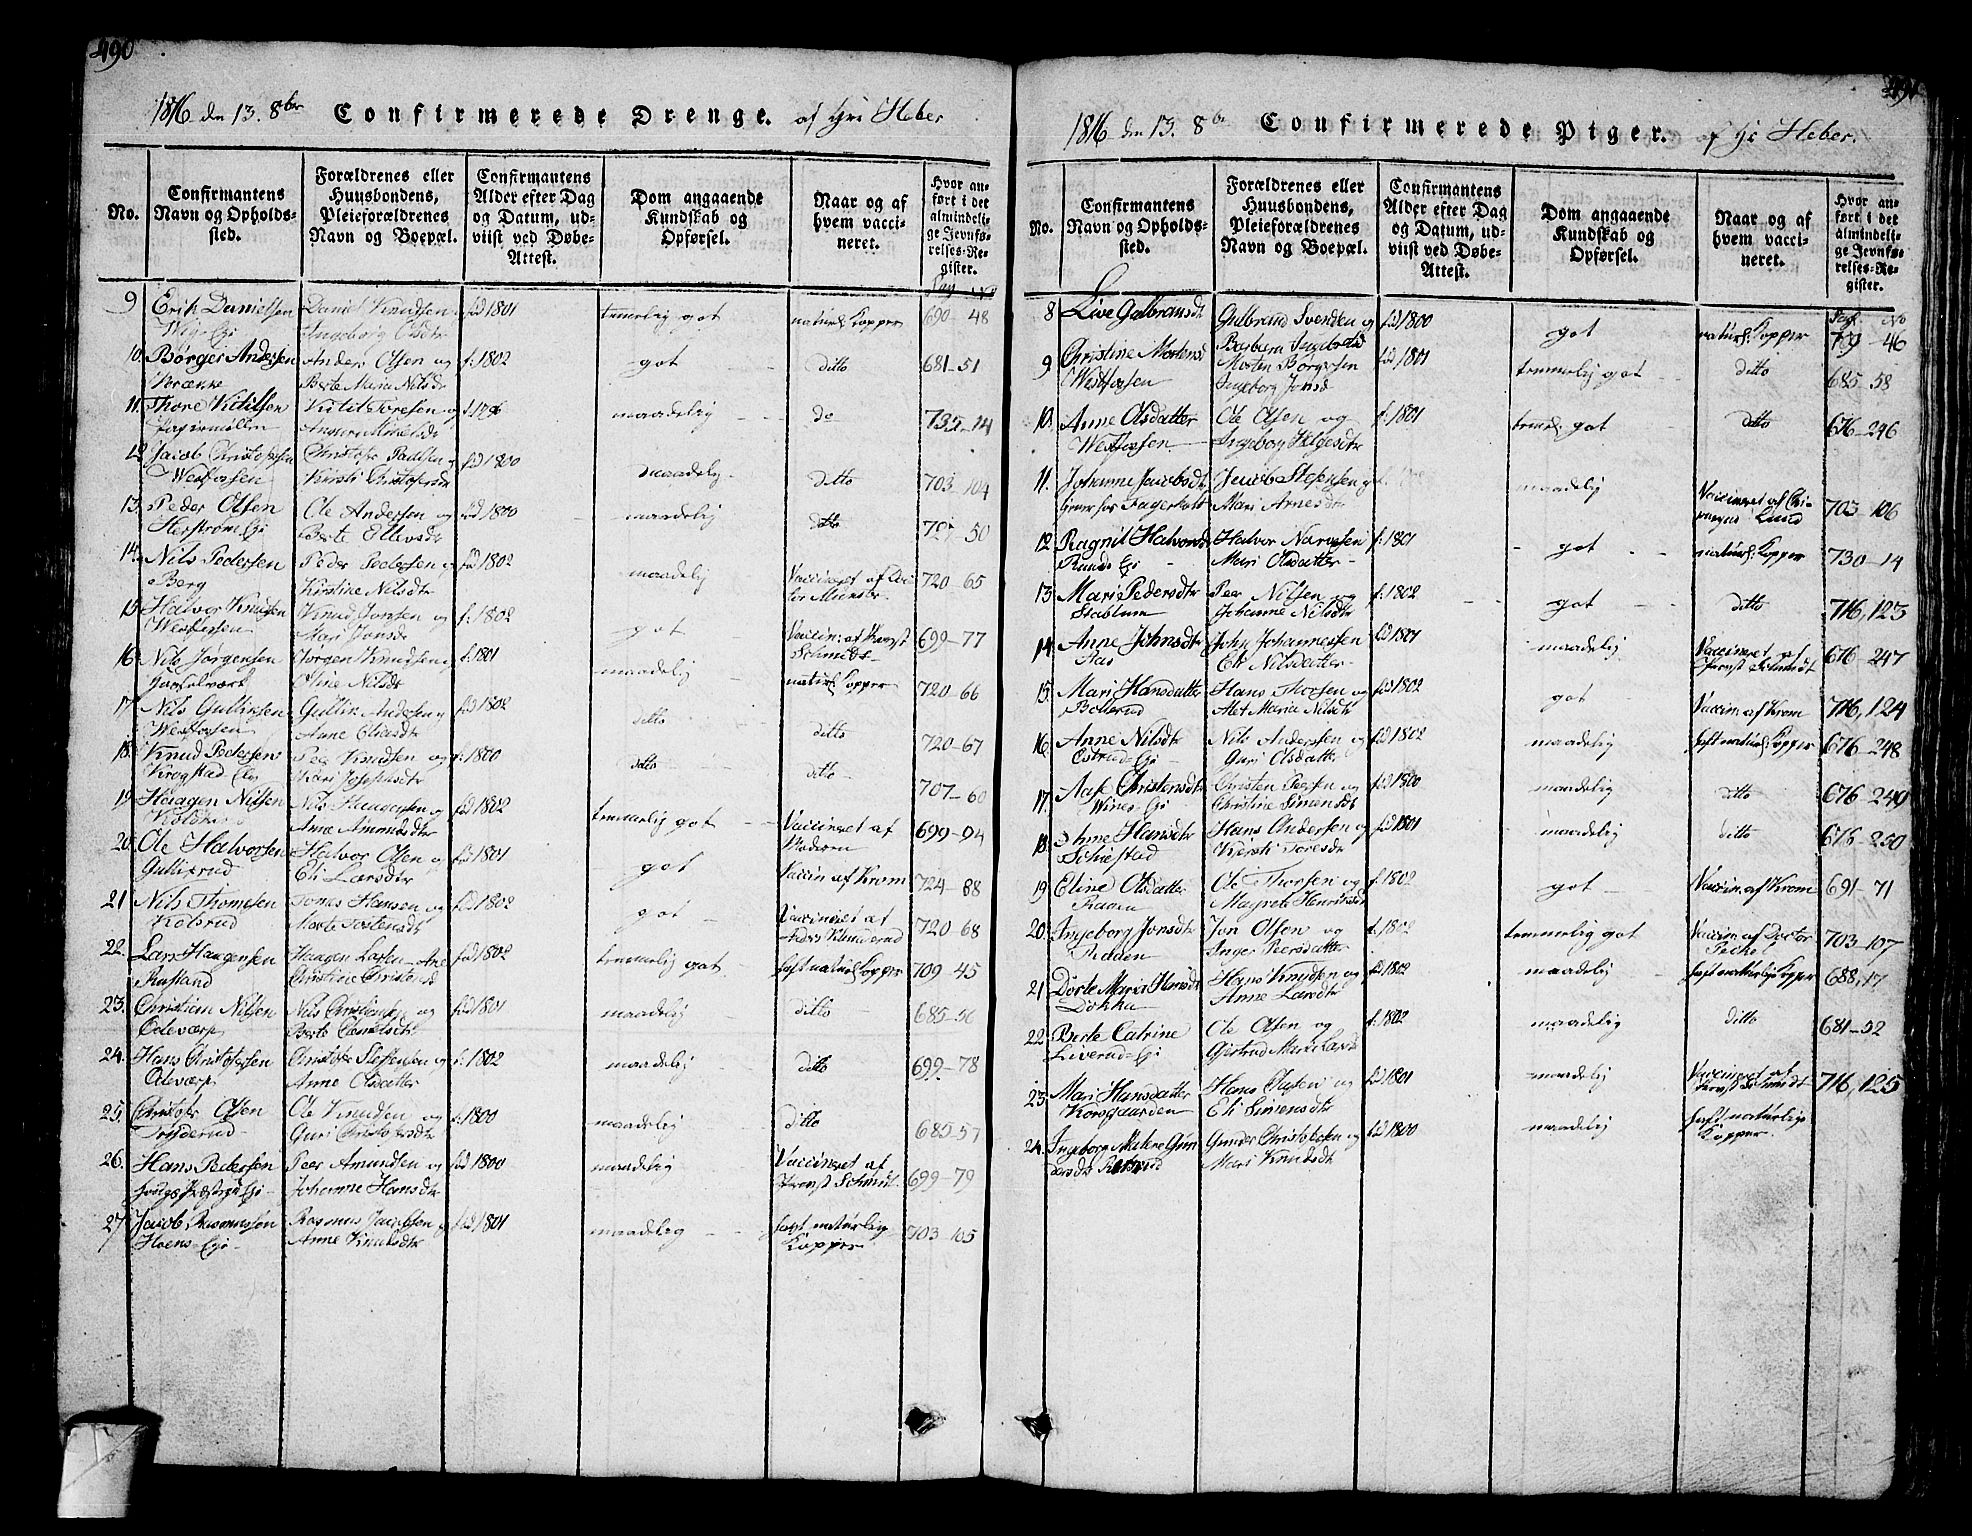 490
1816 den 13. 8br Confirmerede Drenge. af Hr Heber
No.
Confirmantens Navn og Opholdssted.
Forældrenes eller Huusbondens, Pleieforældrenes Navn og Boepæl.
Confirmantens Alder efter Dag og Datum, udviist ved Døbe-Attest.
Dom angaaende Kundskab og Opførsel.
Naar og af hvem vaccineret.
Hvor anført i det almindelige Jevnførelses-Register.
Pag No
9 Erik Danielsen Daniel Knudsen fød 1801 temmelig got naturl. Kopper 690-48
Ingeborg Olsdtr
10. Børger Andersen Anders Olsen og f. 1802 got ditto 681-51
Brække Berte Maria Nilsdtr
11. Thore Kitilsen Kitil Toresen og maadelig do 735-14
12 Jacob Christofersen Christofer fød 1800 maadelig ditto 703-104
Westfossen Kirsti Christofersdtr
13. Peder Olsen Ole Andersen og fød 1800 maadelig ditto 50
Berte Ellevsdtr
14. Nils Pedersen Peder Pedersen og fød 1802 maadelig Vaccineret af Doctor 720-65
Berg Kirstine Nilsdtr
15. Halvor Knudsen Knud Jonsen og f. 1802 got Vaccin: af Provst 699-77
Westfossen Mari Jonsdtr Schmidt
16. Nils Jørgensen Jørgen Knudsen f. 1801 maadelig naturl. Kopper 720-66
Oline Nilsdtr
17. Nils Gullichsen Gullik Andersen fød 1802 ditto ditto 720-67
Westfossen Anne Olsdtr
18. Knud Pedersen Peer Knudsen og f. 1800 ditto ditto 707-60
Krogstad Josephsdtr
19. Haagen Nilsen Nils Haagensen og fød 1802 temmelig got Vaccineret af 699-94
Anne Amundsdtr Moderen
20. Ole Halvorsen Halvor Olsen og fød 1801 got Vaccin af Krom 724-88
Gullixrud Eli Larsdtr
21 Nils Thomesen Tomas Hansen og fød 1802 got Vaccineret af 720-68
Kolsrud Marte Torstensdtr
22. Lars Haagensen Haagen Larsen fød 1802 temmelig got haft naturl. Kopper 709-45
Rustand Christine Christensd
23. Christian Nilsen Nils Christensen og fød 1801 maadelig ditto 685-56
Odeværp Berte
24. Hans Christofersen Christofer Steffensen og f. 1802 maadelig ditto 699-78
Odeværp Anne Olsdatter
25. Christofer Olsen Ole Knudsen og f. 1800 maadelig ditto 685-57
Guri Christofersdtr
26. Hans Pedersen Peer Amundsen og fød 1800 maadelig Vaccineret af 699-79
Johanne Hansdtr Provst Schmidt
27 Jacob Rasmussøn Rasmus Jacobsen fød 1801 maadelig haft naturlig 703-105
Hoens Eje Anne Knudsdtr Kopper
491
1816 den 13. 8br Confirmerede Piger. af Hr Heber.
No.
Confirmantens Navn og Opholdssted.
Forældrenes eller Huusbondens, Pleieforældrenes Navn og Boepæl.
Confirmantens Alder efter Dag og Datum, udviist ved Døbe-Attest.
Dom angaaende Kundskab og Opførsel.
Naar og af hvem vaccineret.
Hvor anført i det almindelige Jevnførelses-Register.
Pag No
8 Live Gulbransdt Gulbrand Svendsen og fød 1800 got naturl. Kopper 46
Barbara
9 Christine Mortensd Morten Børgersen fød 1801 temmelig got ditto 685-58
Westfossen Ingeborg Jonsd
10. Anne Olsdatter Ole Olsen og f. 1801 temel. got ditto 676-246
Westfossen Ingeborg Helgesdtr
11. Johanne Jacobsdt Jacob Stefensen maadelig Vaccineret af 703-106
Fagerholt Mari Arnesdtr Lund
12 Ragnil Halvorsdt Halvor Narvesen f. 1801 got naturl. Kopper 730-14
Eje Mari Olsdatter
13 Mari Pedersdtr Peer Nilsen og f. 1802 got ditto 716,123
Stablum Johanne Nilsdtr
14. Anne Johnsdtr John Johannessen fød 1801 maadelig Vaccineret af 676-247
Aas Eli Nilsdatter Provst Schmidt
15. Mari Hansdatter Hans Thorsen og fød 1802 got Vaccin af Krom 716,124
Bollerud Alet Maria Nilsdtr
16. Anne Nilsdtr Nils Andersen og fød 1802 maadelig haft naturl. Kopper 676-248
Guri Olsdatter
17. Aase Christensdt Christen Peersen fød 1800 maadelig ditto 676-249
Wines Eje Christine Simensdt
18. Anne Hansdtr Hans Andersen og fød 1801 maadelig ditto 676-250
Kirsti Toresdtr
19 Eline Olsdatter Ole Thorsen og f. 1802 got Vaccin. af Krom 691-71
Ravn Magrete Henriksdt
20. Ingeborg Jonsdtr Jon Olsen og f. 1802 temmelig got Vaccin. af Doctor 703-107
Inger Peersdatter
21 Dorte Maria Hansdt Hans Knudsen og fød 1802 maadelig haft naturlig Kopper 688,17
Dokka Anne Larsdtr
22. Berte Catrine Ole Olsen og f. 1802 maadelig ditto 681-52
Liverud-Eje Gjertrud Marie
23. Mari Hansdatter Hans og fød 1801 maadelig Vaccineret af 716,125
Korsgaarden Eli Simensdtr Provst Schmidt
24. Ingeborg Malene Gun Gunder Christofersen og fød 1800 maadelig haft naturlige
dersdtr Mari Knudsdt Kopper.